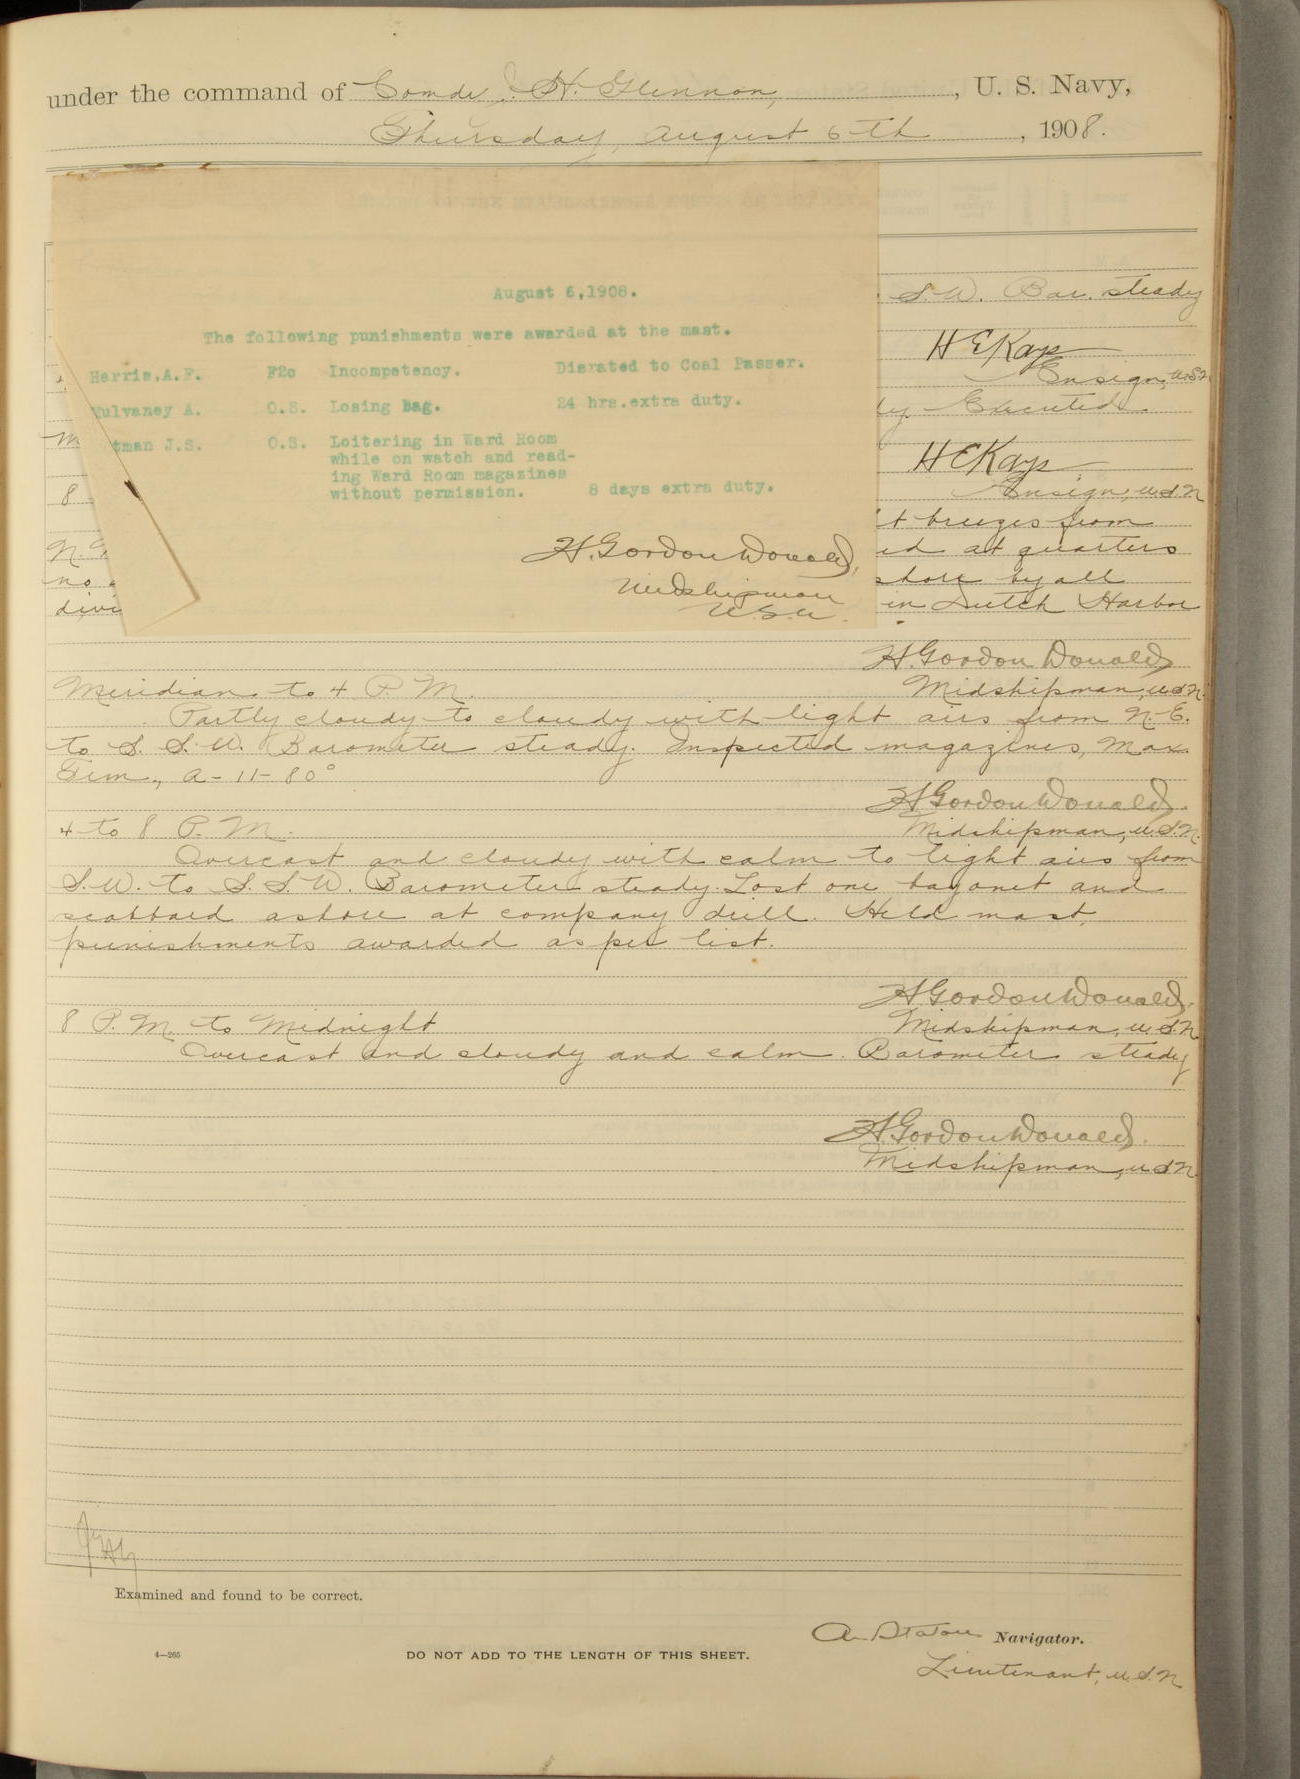 under the command of Comdr J. H. Glennon, , U. S. Navy,
Thursday, August 6th , 1908.
August 6,1908.
The following punishments were awarded at the mast.
Harris,A.F. F2c Incompetency. Disrated to Coal Passer.
Mulvaney A. O.S. Losing bag. 24 hrs.extra duty.
tman J.S. O.S. Loitering in Ward Room
while on watch and read-
ing Ward Room magazines
without permission. 8 days extra duty.
H. Gordon Donald,
Midshipman
U.S.N.
S.W. Bar. steady
H E Kays
Ensign, U.S.N.
ly. Executed
M
H E Kays
8
Ensign, U.S.N
t breezes from
N. ed at quarters
no shore by all
divi in Dutch Harbor
H. Gordon Donald
Meridian to 4 P M. Midshipman, U.S.N.
Partly cloudy to cloudy with light airs from N.E.
to S. S. W. Barometer steady. Inspected magazines, Max.
Tem., A-11-80°
H. Gordon Donald.
4 to 8 P. M. Midshipman, U.S.N.
Overcast and cloudy with calm to light airs from
S.W. to S. S. W. Barometer steady. Lost one bayonet and
scabbard ashore at company drill. Held mast,
punishments awarded as per list.
H. Gordon Donald.
8 P. M. to Midnight Midshipman, U.S.N
Overcast and cloudy and calm. Barometer steady
H. Gordon Donald.
Midshipman, U.S.N.
Examined and found to be correct.
A Staton Navigator.
4—265 DO NOT ADD TO THE LENGTH OF THIS SHEET.
Lieutenant, U.S.N